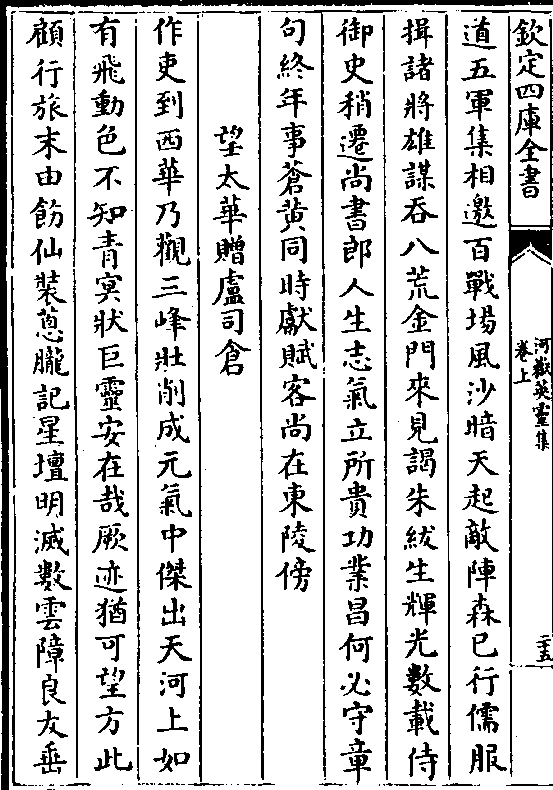 欽定四庫全書
河嶽英靈集
卷上
二十五
道五軍集相邀百戰場風沙暗天起敵陣森已行儒服
揖諸將雄謀吞八荒金門來見謁朱紱生輝光數載侍
御史稍遷尚書郎人生志氣立所貴功業昌何必守章
句終年事蒼黄同時獻賦客尚在東陵傍
望太華贈盧司倉
作吏到西華乃觀三峰壯削成元氣中傑出天河上如
有飛動色不知青冥狀巨靈安在哉厥迹猶可望方此
顧行旅末由飭仙裝蔥朧記星壇明滅數雲障良友垂